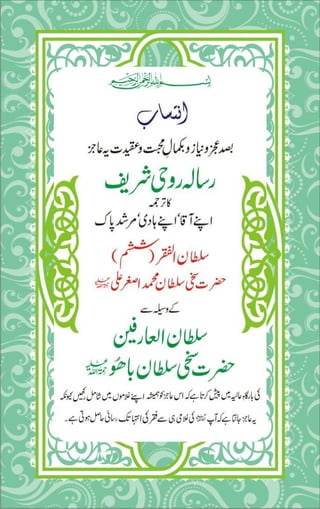 بسم اللہ الرحمن الرحیم
انتساب
بصد عجز و نیاز و بکمال محبت و عقیدت یہ عاجز
رسالہ روحی شریف
کا ترجمہ
اپنے آقا‘ اپنے ہادی‘ مرشد پاک
سلطان الفقر (ششم)
حضرت سخی سلطان محمد اصغر علی
کے وسیلہ سے
سلطان العارفین
حضرت سخی سلطان باھُو
کی بارگاہِ عالیہ میں پیش کرتا ہے کہ اس عاجز کو ہمیشہ اپنے غلاموں میں شامل رکھیں کیونکہ
یہ عاجز جانتا ہے کہ آپ کی غلامی ہی سے فقر کی انتہا تک رسائی حاصل ہوتی ہے۔